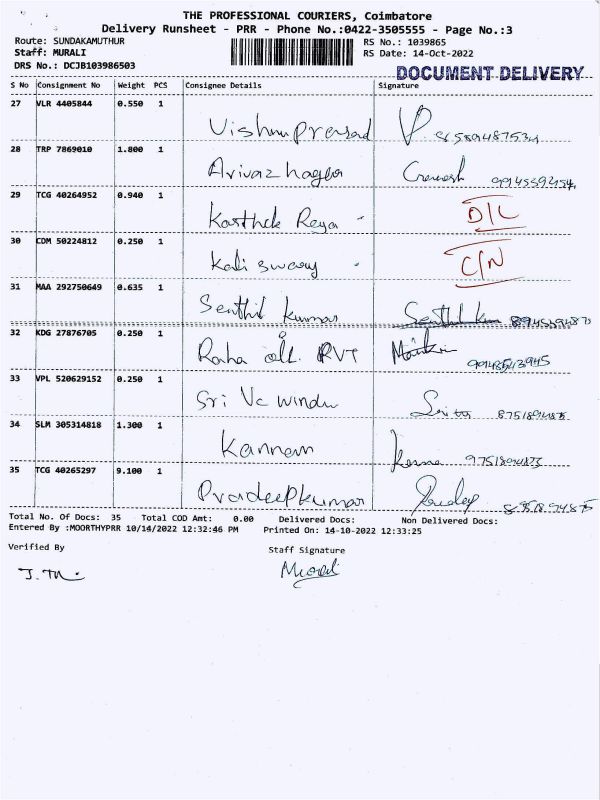 THE PROFESSIONAL COURIERS, Coimbatore
Delivery Runsheet - PRR - Phone No.:0422-3505555 - Page No.:3
Route: SUNDAKAMUTHUR RS No.: 1039865
Staff: MURALI RS Date: 14-Oct-2022
DRS No.: DCJB103986503
DOCUMENT DELIVERY
S No Consignment No Weight PCS Consignee Details Signature
27 VLR 4405844 0.550 1
Vishnu Prasad
28 TRP 7869010 1.800 1
Arivazhagan
29 TCG 40264952 0.940 1
D/L
30 CDM 50224812 0.250 1
Kali swamy C/N
31 MAA 292750649 0.635 1
Senthil kumar
32 KDG 27876705 0.250 1
PVT
33 VPL 520629152 0.250 1
Sri
34 SLM 305314818 1.300 1
Kannam
35 TCG 40265297 9.100 1
Pradeepkumar
Total No. Of Docs: 35 Total COD Amt: 0.00 Delivered Docs: Non Delivered Docs:
Entered By :MOORTHYPRR 10/14/2022 12:32:46 PM Printed On: 14-10-2022 12:33:25
Verified By Staff Signature
Murali